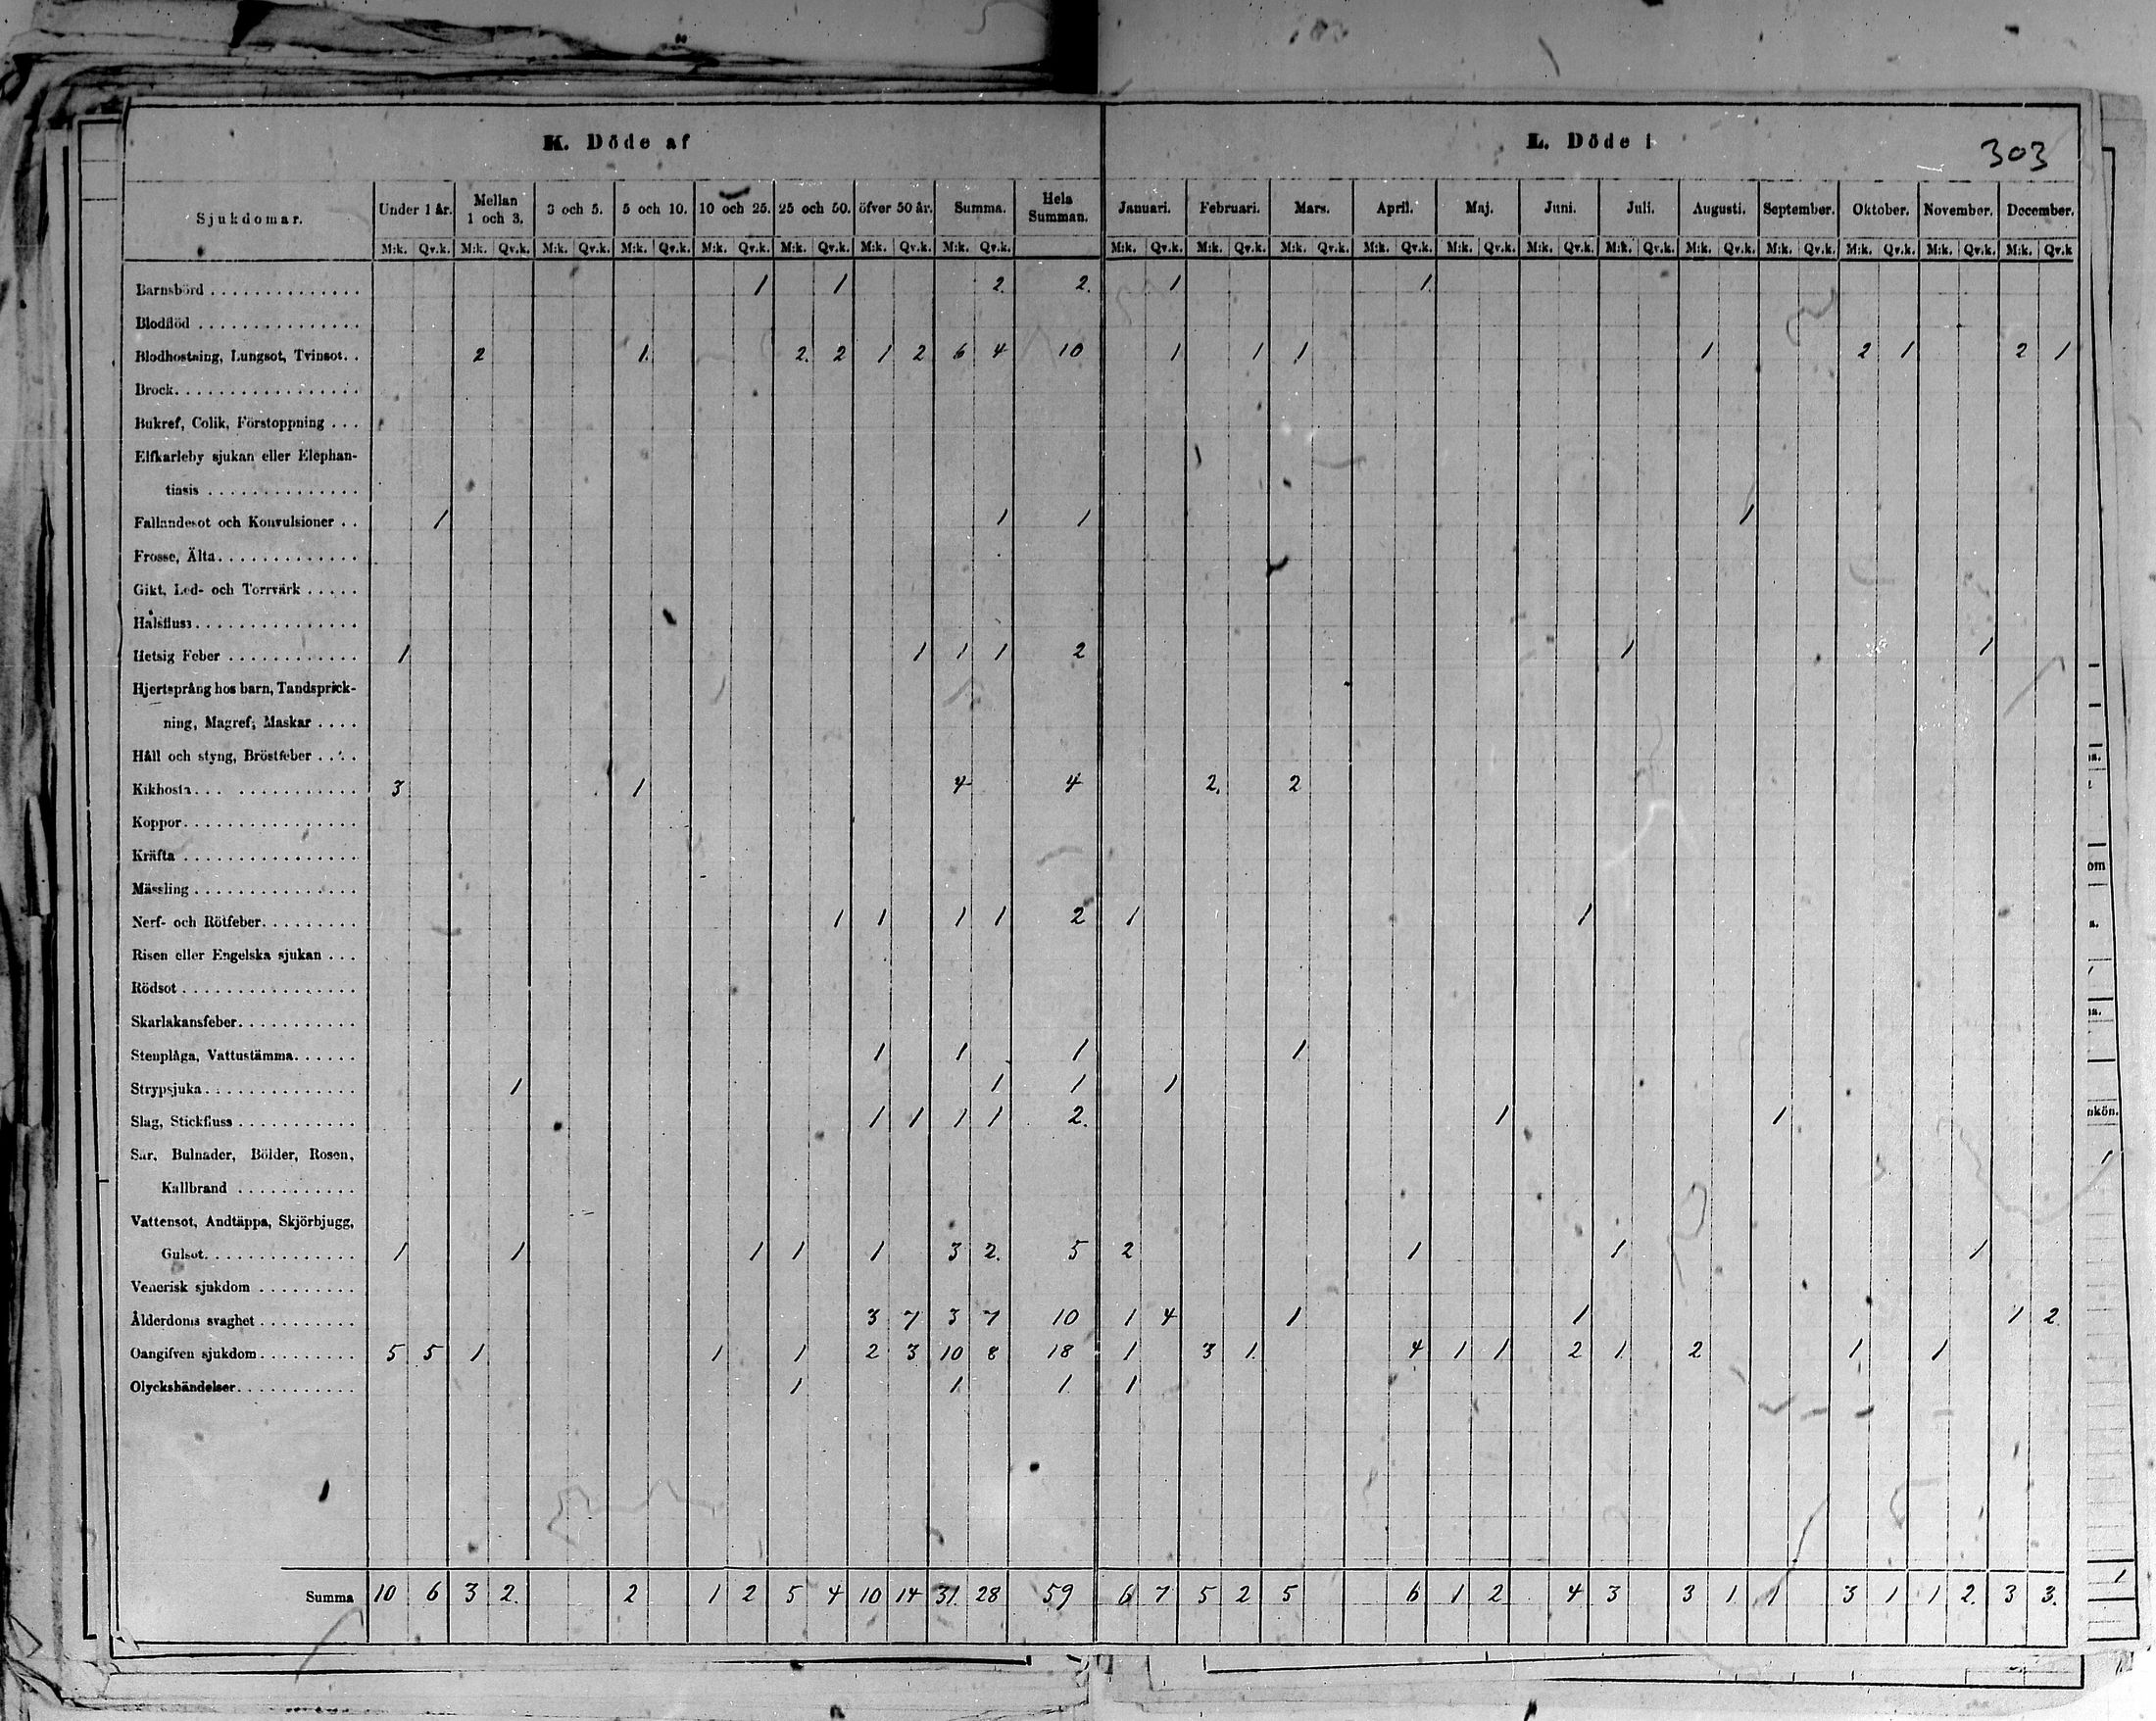 K. Döde af L. Döde i 303
Sjukdomar. Under 1 år. Mellan 1 och 3. 3 och 5. 5 och 10. 10 och 25. 25 och 50. öfver 50 år. Summa. Hela Summan. Januari. Februari. Mars. April. Maj. Juni. Juli. Augusti. September. Oktober. November. December.
M:k. Qv.k. M:k. Qv.k. M:k. Qv.k. M:k. Qv.k. M:k. Qv.k. M:k. Qv.k. M:k. Qv.k. M:k. Qv.k. M:k. Qv.k. M:k. Qv.k. M:k. Qv.k. M:k. Qv.k. M:k. Qv.k. M:k. Qv.k. M:k. Qv.k. M:k. Qv.k. M:k. Qv.k. M:k. Qv.k. M:k. Qv.k. M:k. Qv.k
Barnsbörd . . . . . . . . . . . . . . 1 1 2. 2. 1 1.
Blodflöd . . . . . . . . . . . . . . .
Blodhostning, Lungsot, Tvinsot. . 2 1. 2. 2 1 2 6 4 10 1 1 1 1 2 1 2 1
Brock. . . . . . . . . . . . . . . . .
Bukref, Colik, Förstoppning . . .
Elfkarleby sjukan eller Elephan-
tiasis . . . . . . . . . . . . . .
Fallandesot och Konvulsioner . . 1 1 1 1
Frosse, Älta. . . . . . . . . . . . .
Gikt, Led- och Torrvärk . . . . .
Halsfluss. . . . . . . . . . . . . . .
Hetsig Feber . . . . . . . . . . . . 1 1 1 1 2 1 1
Hjertsprång hos barn, Tandsprick-
ning, Magref, Maskar . . . .
Håll och styng, Bröstfeber . . . .
Kikhosta. . . . . . . . . . . . . . 3 1 4 4 2. 2
Koppor. . . . . . . . . . . . . . . .
Kräfta . . . . . . . . . . . . . . . .
Mässling . . . . . . . . . . . . . . .
Nerf- och Rötfeber. . . . . . . . . 1 1 1 1 2 1 1
Risen eller Engelska sjukan . . .
Rödsot . . . . . . . . . . . . . . . .
Skarlakansfeber. . . . . . . . . . .
Stenplåga, Vattustämma. . . . . . 1 1 1 1
Strypsjuka. . . . . . . . . . . . . . 1 1 1 1
Slag, Stickfluss . . . . . . . . . . . 1 1 1 1 2. 1 1
Sår, Bulnader, Bölder, Rosen,
Kallbrand . . . . . . . . . . .
Vattensot, Andtäppa, Skjörbjugg,
Gulsot. . . . . . . . . . . . . . 1 1 1 1 1 3 2. 5 2 1 1 1
Venerisk sjukdom . . . . . . . . .
Ålderdoms svaghet . . . . . . . . . 3 7 3 7 10 1 4 1 1 1 2
Oangifven sjukdom. . . . . . . . . 5 5 1 1 1 2 3 10 8 18 1 3 1 4 1 1 2 1 2 1 1
Olyckshändelser. . . . . . . . . . . 1 1 1 1
Summa 10 6 3 2. 2 1 2 5 4 10 14 31 28 59 6 7 5 2 5 6 1 2 4 3 3 1 1 3 1 1 2. 3 3.